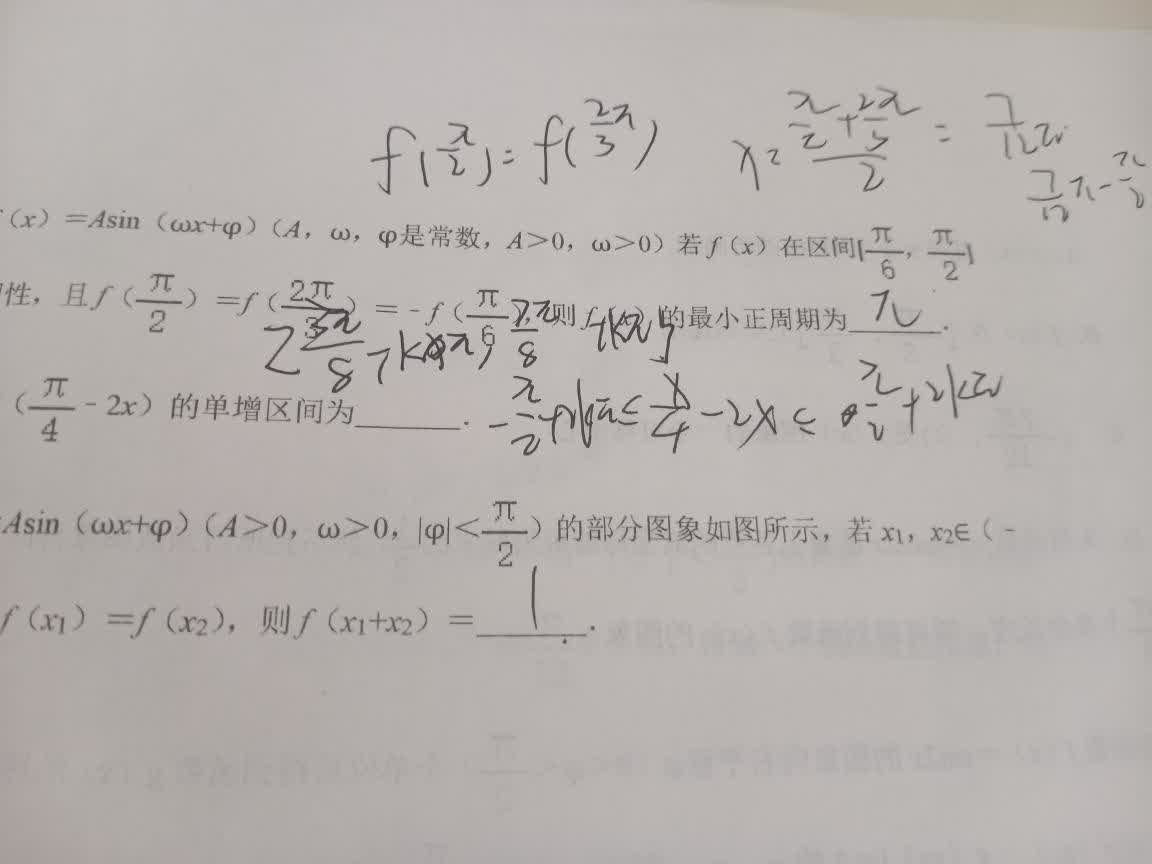 f(π/2) = f(2π/3) x = (π/2 + 2π/3)/2 = 7/12 π
7/12 π - π/2
(x)=Asin(ωx+φ)(A,ω,φ是常数,A>0,ω>0)若f(x)在区间[π/6,π/2]
性,且f(π/2)=f(2π/3)=-f(π/6),则f 的最小正周期为 π.
(π/4-2x)的单增区间为______. -π/2+2kπ≤π/4-2x≤π/2+2kπ
Asin(ωx+φ)(A>0,ω>0,|φ|<π/2)的部分图象如图所示,若x₁,x₂∈(-
f(x₁)=f(x₂),则f(x₁+x₂)= 1.